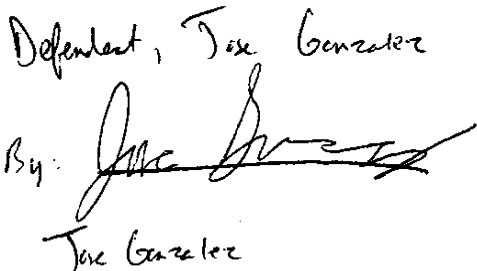 Defendant, Jose Gonzalez
By: Jose Gonzalez
Jose Gonzalez